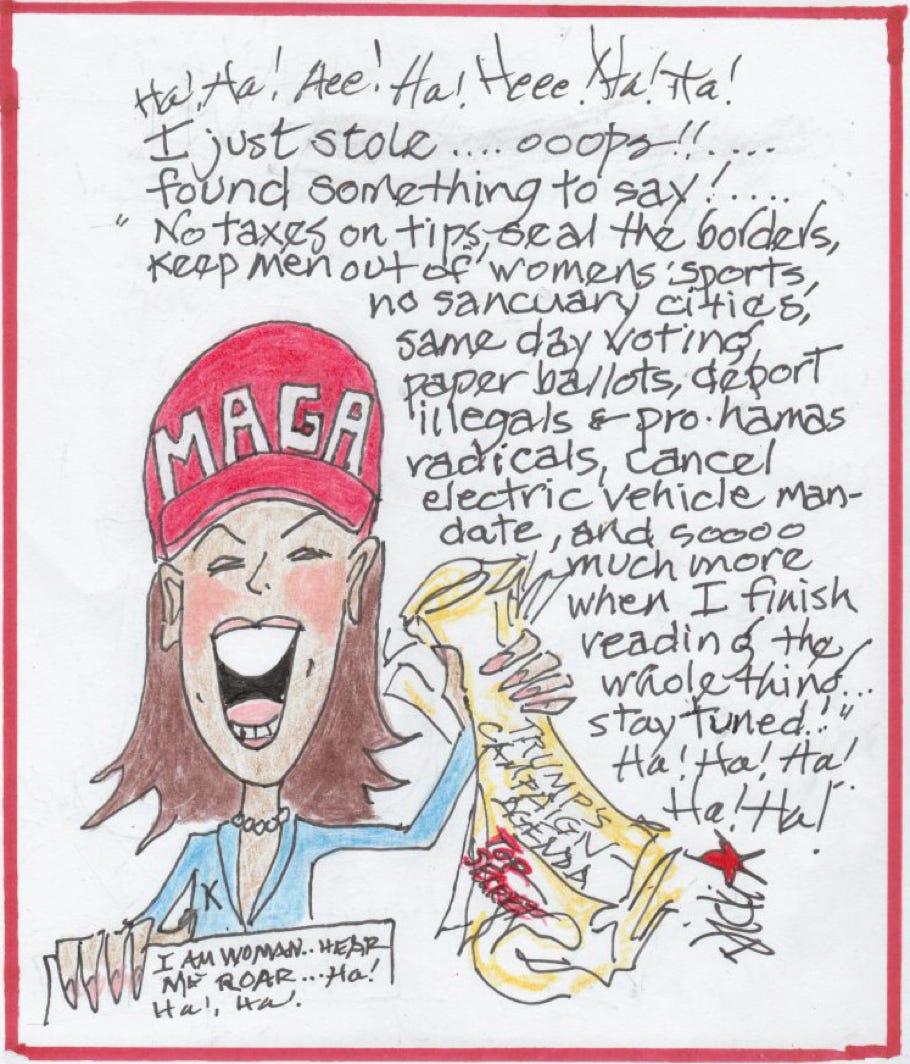 Ha! Ha! Aee! Ha! Heee! Ha! Ha!
I just stole .... ooops!!....
found something to say!.....
"No taxes on tips, seal the borders,
keep men out of womens sports,
no sancuary cities,
same day voting
paper ballots, deport
illegals & pro-hamas
radicals, cancel
electric vehicle man-
date, and soooo
much more
when I finish
reading the
whole thing...
stay tuned!.."
Ha! Ha! Ha!
Ha! Ha!
MAGA
TRUMP'S
CAMPAIGN
AGENDA
TOP
SECRET
K
I AM WOMAN.. HEAR
ME ROAR... Ha!
Ha!, Ha!